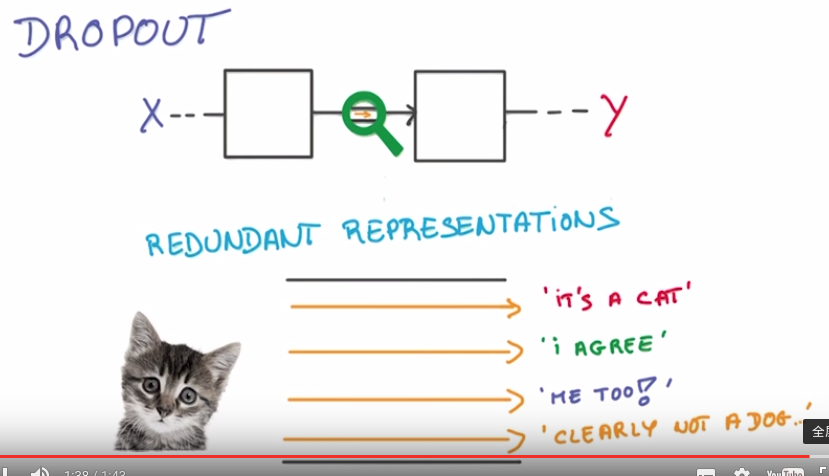 DROPOUT
X Y
REDUNDANT REPRESENTATIONS
'IT'S A CAT'
'I AGREE'
'ME TOO!'
'CLEARLY NOT A DOG...'
1:38 / 1:43
YouTube